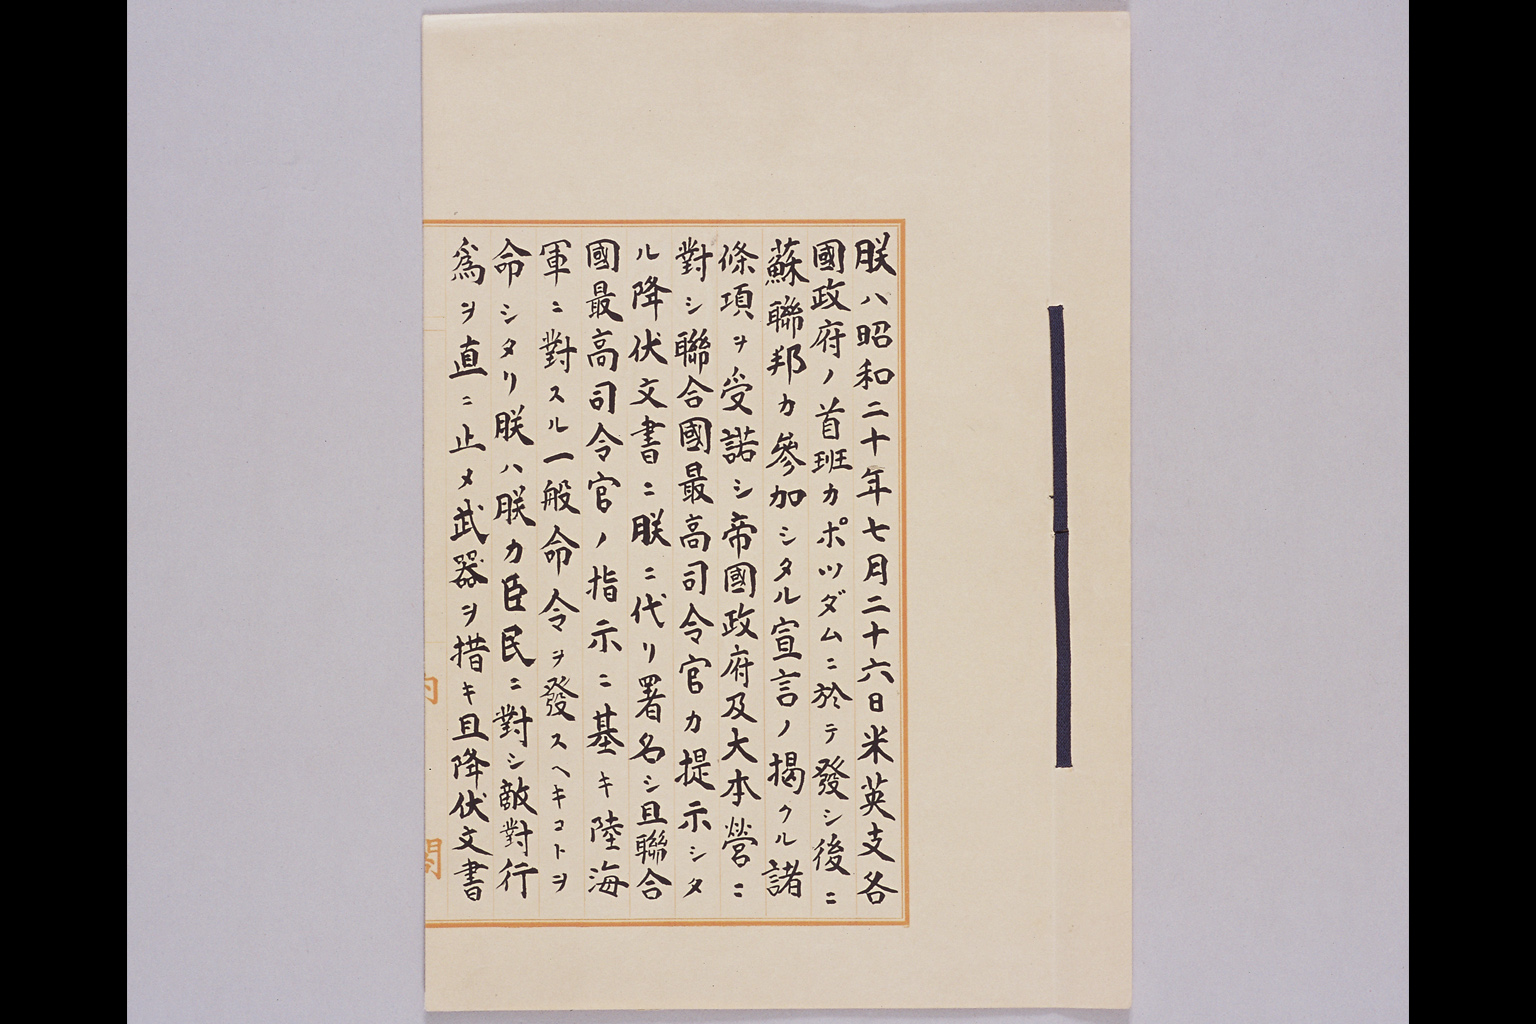 朕ハ昭和二十年七月二十六日米英支各
國政府ノ首班カポツダムニ於テ發シ後ニ
蘇聯邦カ參加シタル宣言ノ揭クル諸
條項ヲ受諾シ帝國政府及大本營ニ
對シ聯合國最高司令官カ提示シタ
ル降伏文書ニ朕ニ代リ署名シ且聯合
國最高司令官ノ指示ニ基キ陸海
軍ニ對スル一般命令ヲ發スヘキコトヲ
命シタリ朕ハ朕カ臣民ニ對シ敵對行
爲ヲ直ニ止メ武器ヲ措キ且降伏文書
内閣